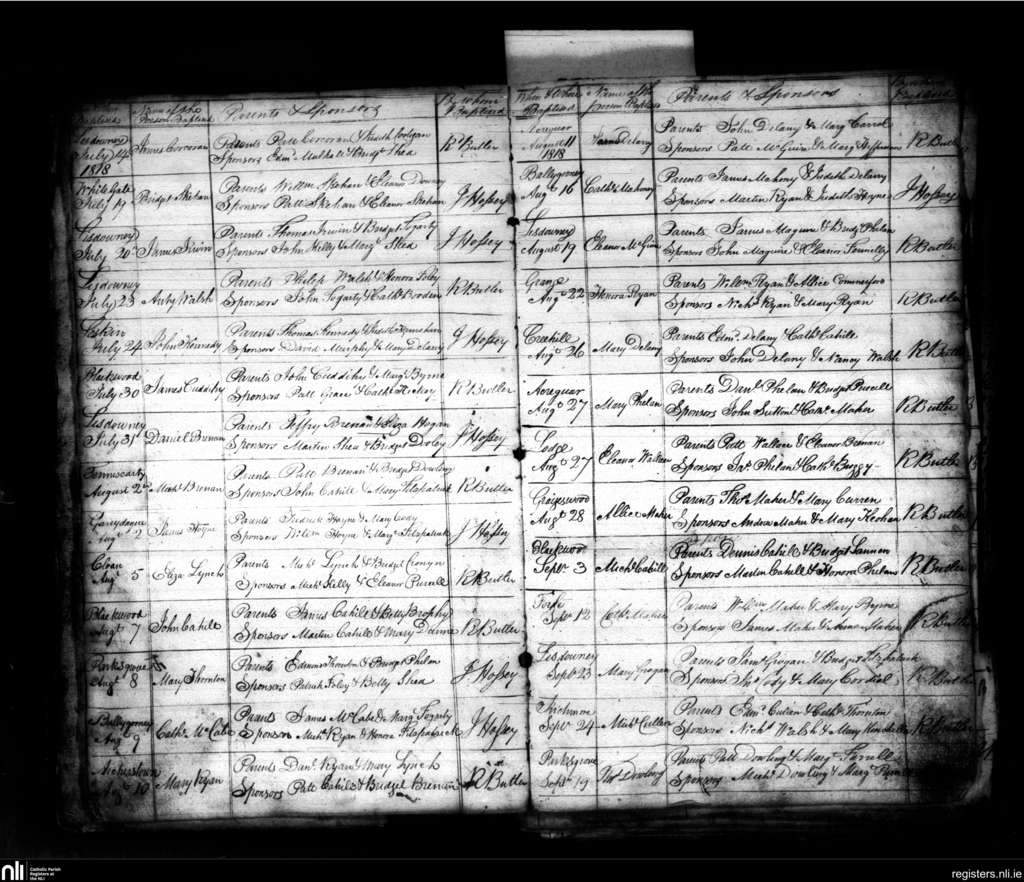 Name of the Person Baptized
Parents & Sponsors
By whom Baptized
Lisdowney July 14th 1818
James Corcoran
Parents Patt Corcoran & Judith
Sponsors Edmd & Bridgt Shea
R Butler
White Gate July 19
Bridgt Skehan
Parents Willm Skehan & Eleanor Downey
Sponsors Patt Skehan & Eleanor Skehan
J Hossey
Lisdowney July 20th
James Irwin
Parents Thomas Irwin & Bridgt Fogarty
Sponsors John Kelly & Margt Shea
J Hossey
Lisdowney July 23
Anty Walsh
Parents Philip Walsh & Honora Foley
Sponsors John Fogarty & Cathe
R Butler
July 24
John Kennedy
Parents Thomas Kennedy & Judith
Sponsors David Murphy & Mary Delany
J Hossey
Blackwood July 30
James Cuddihy
Parents John Cuddihy & Margt Byrne
Sponsors Patt Grace & Cathe Hickey
R Butler
Lisdowney July 31st
Daniel Brenan
Parents Jeffry Brenan & Eliza Hogan
Sponsors Martin Shea & Bridget Doley
J Hossey
August 2nd
Michl Brenan
Parents Patt Brenan & Bridgt Dowling
Sponsors John Cahill & Mary Fitzpatrick
R Butler
Augt 2
James Hoyne
Parents Fredrick Hoyne & Mary Cody
Sponsors Willm Hoyne & Margt Fitzpatrick
J Hossey
Cloan Augt 5
Eliza Lynch
Parents Michl Lynch & Bridgt Cronyn
Sponsors Michl Kelly & Eleanor Purcell
R Butler
Blackwood Augt 7
John Cahill
Parents James Cahill & Betty Brophy
Sponsors Martin Cahill & Mary Dunne
R Butler
Parksgrove Augt 8
Mary Thornton
Parents Edmund Thornton & Bridget Phelan
Sponsors Patrick Foley & Betty Shea
J Hossey
Ballygooney Augt 9
Cathe McCabe
Parents James McCabe & Margt Fogarty
Sponsors Michl Ryan & Honora Fitzpatrick
J Hossey
Archerstown Augt 10
Mary Ryan
Parents Danl Ryan & Mary Lynch
Sponsors Patt Cahill & Bridget Brenan
R Butler
When & Where Baptized
Name of the Person Baptized
Parents & Sponsors
Aoreguar August 11 1818
Delany
Parents John Delany & Mary Carrol
Sponsors Patt McGuire & Mary Heffernan
R Butler
Ballygooney Augt 16
Cathe Mahony
Parents James Mahony & Judith Delany
Sponsors Martin Ryan & Judith Hoyne
J Hossey
Lisdowney August 19
Elenor McGuire
Parents James Maguire & Bridgt Phelan
Sponsors John Maguire & Eleanor
R Butler
Grange Augt 22
Honora Ryan
Parents Willm Ryan & Allice Commerford
Sponsors Nichs Ryan & Mary Ryan
R Butler
Augt 26
Mary Delany
Parents Edmd Delany & Cathe Cahill
Sponsors John Delany & Nancy Walsh
R Butler
Aoreguar Augt 27
Mary Phelan
Parents Danl Phelan & Bridget Purcell
Sponsors John Sutton & Cathe Maher
R Butler
Lodge Augt 27
Eleanor Wallace
Parents Patt Wallace & Eleanor Brenan
Sponsors Jas Phelan & Cathe Buggy
R Butler
Graigeswood Augt 28
Allice Maher
Parents Thos Maher & Mary Curren
Sponsors Andrew Maher & Mary Keohan
R Butler
Blackwood Septr 3
Michl Cahill
Parents Dennis Cahill & Bridget Lannon
Sponsors Martin Cahill & Honora Phelan
R Butler
Septr 12
Cathe Maher
Parents Willm Maher & Mary Byrne
Sponsors James Maher & Anne Maher
R Butler
Lisdowney Septr 23
Mary Grogan
Parents James Grogan & Bridget Fitzpatrick
Sponsors Jas Cody & Mary Cordial
R Butler
Septr 24
Michl Cullen
Parents Edmd & Cathe Thornton
Sponsors Nichs Walsh & Mary
R Butler
Parksgrove Septr 19
Dowling
Parents Patt Dowling & Mary Farrell
Sponsors Michl Dowling & Margt
nli
Catholic Parish
Registers at
the NLI
registers.nli.ie